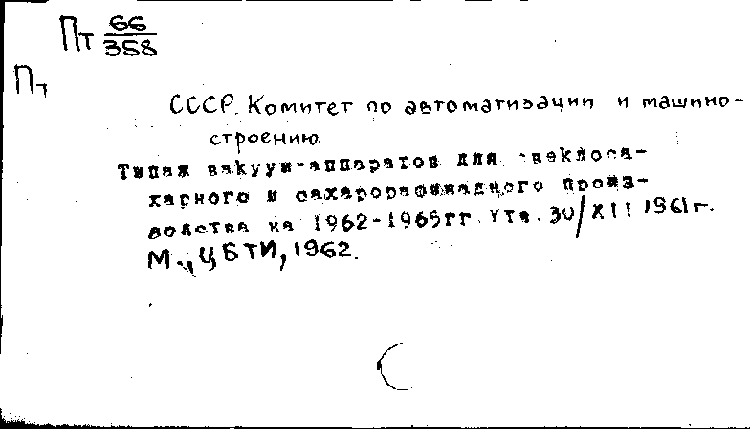 Пт 66/358
Пт
СССР. Комитет по автоматизации и машино-
строению
Типаж вакуум-аппаратов для свеклоса-
харного и сахарорафинадного произ-
водства на 1962-1965гг. Утв. 30/XII 1961г.
М., ЦБТИ, 1962.